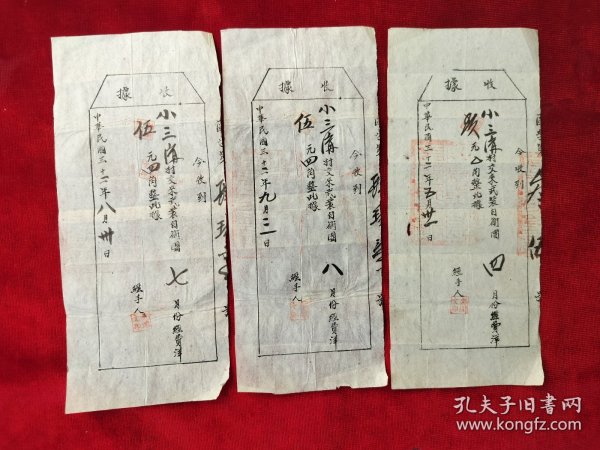 收據
今收到
小三溝村交來武裝自衛團七月份經費洋
伍元四角整此據
經手人
中華民國三十二年八月卅日
收據
今收到
小三溝村交來武裝自衛團八月份經費洋
伍元四角整此據
經手人
中華民國三十二年九月二二日
收據
今收到
小三溝村交來武裝自衛團四月份經費洋
元
角整此據
經手人
中華民國三十二年五月卅一日
孔夫子旧书网
www.kongfz.com